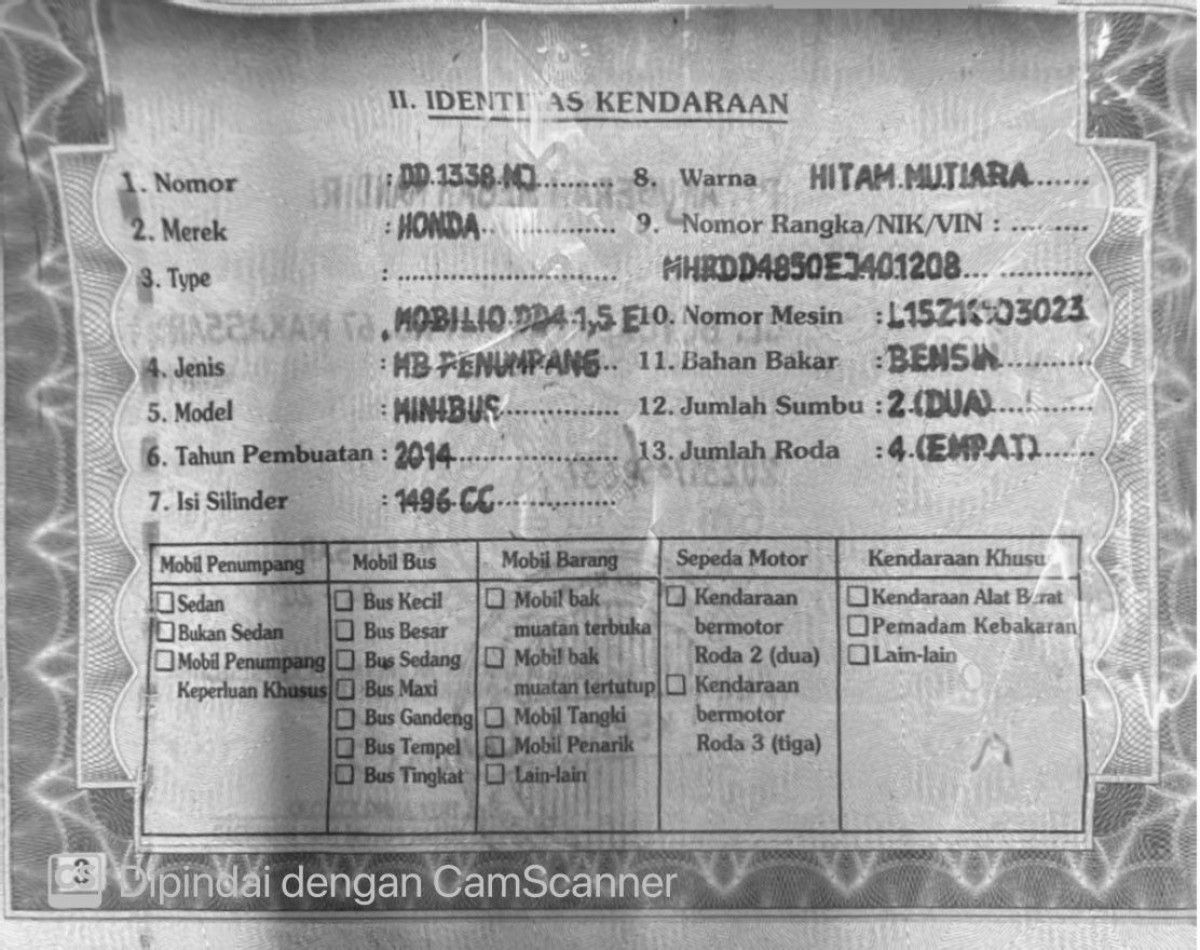 II. IDENTITAS KENDARAAN
1. Nomor : DD.1338.MJ
2. Merek : HONDA
3. Type :
MOBILIO DD4 1,5 E
4. Jenis : MB PENUMPANG
5. Model : MINIBUS
6. Tahun Pembuatan : 2014
7. Isi Silinder : 1496 CC
8. Warna HITAM.MUTIARA
9. Nomor Rangka/NIK/VIN :
MHRDD4850EJ401208
10. Nomor Mesin :
11. Bahan Bakar : BENSIN
12. Jumlah Sumbu : 2.(DUA)
13. Jumlah Roda : 4.(EMPAT)
Mobil Penumpang
Sedan
Bukan Sedan
Mobil Penumpang
Keperluan Khusus
Mobil Bus
Bus Kecil
Bus Besar
Bus Sedang
Bus Maxi
Bus Gandeng
Bus Tempel
Bus Tingkat
Mobil Barang
Mobil bak
muatan terbuka
Mobil bak
muatan tertutup
Mobil Tangki
Mobil Penarik
Lain-lain
Sepeda Motor
Kendaraan
bermotor
Roda 2 (dua)
Kendaraan
bermotor
Roda 3 (tiga)
Kendaraan Khusu
Kendaraan Alat Berat
Pemadam Kebakaran
Lain-lain
CS Dipindai dengan CamScanner